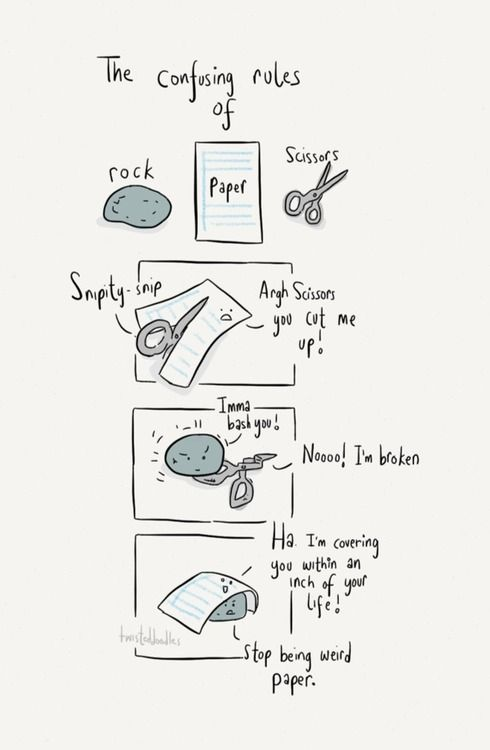 The confusing rules
of
rock
Paper
Scissors
Snipity-snip
Argh Scissors
you cut me
up!
Imma
bash you!
Noooo! I'm broken
Ha. I'm covering
you within an
inch of your
life!
twisteddoodles
Stop being weird
paper.